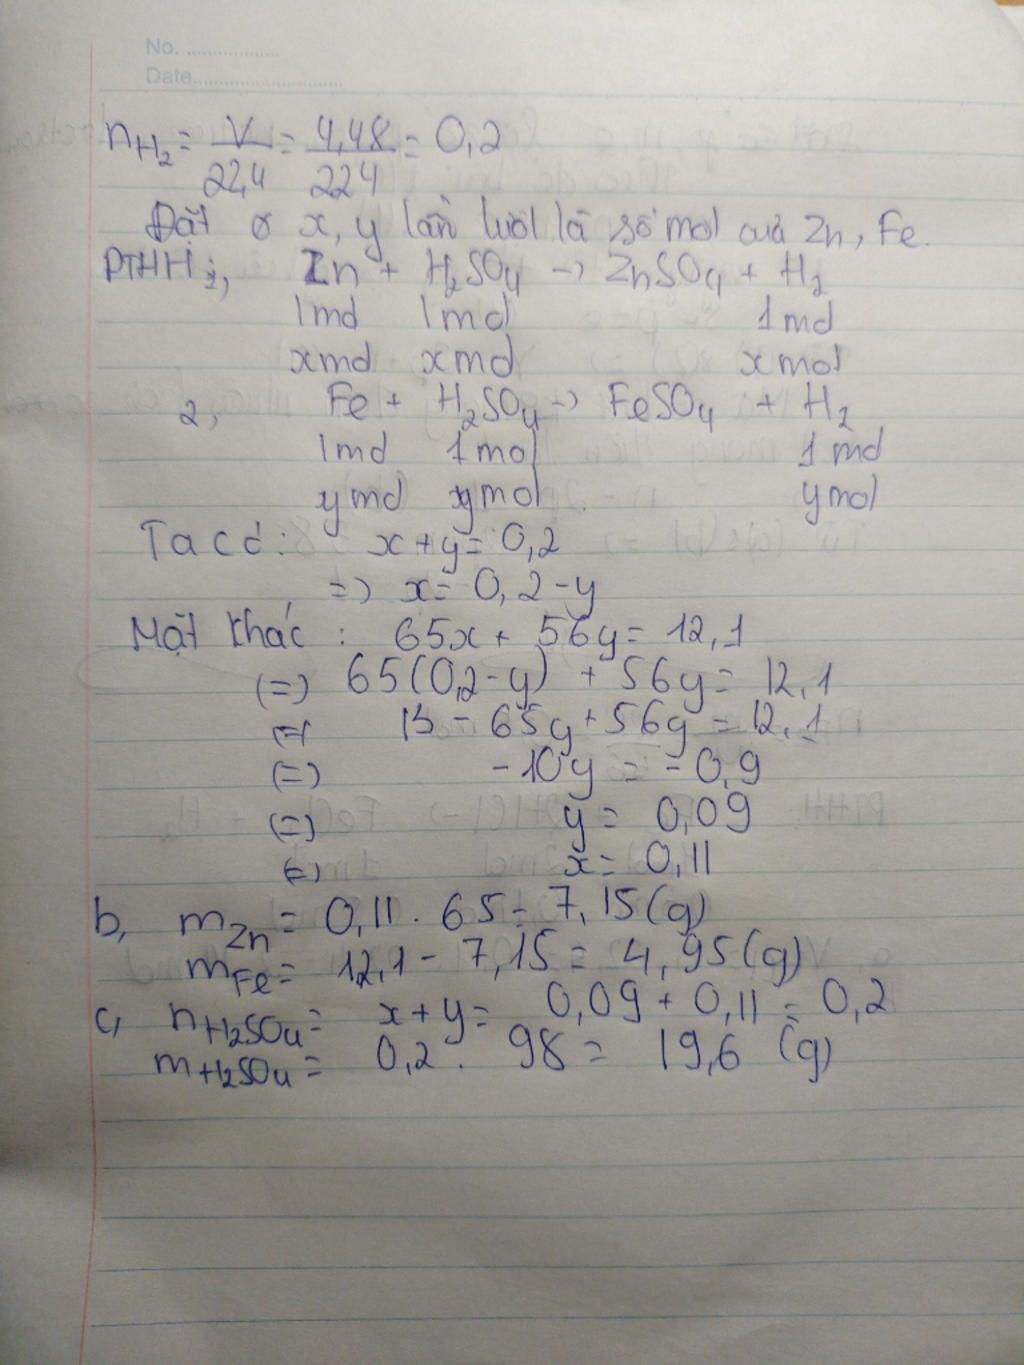 No. ................
Date..........................
nH₂ = V/22,4 = 4,48/22,4 = 0,2
Đặt x, y lần lượt là số mol của Zn, Fe.
PTHH: 1, Zn + H₂SO₄ -> ZnSO₄ + H₂
1mol 1mol 1mol
xmol xmol xmol
2, Fe + H₂SO₄ -> FeSO₄ + H₂
1mol 1mol 1mol
ymol ymol ymol
Ta có: x+y = 0,2
=> x = 0,2 - y
Mặt khác : 65x + 56y = 12,1
(=) 65(0,2 - y) + 56y = 12,1
(=) 13 - 65y + 56y = 12,1
(=) -10y = -0,9
(=) y = 0,09
(=) x = 0,11
b, mZn = 0,11 . 65 = 7,15(g)
mFe = 12,1 - 7,15 = 4,95(g)
c, nH₂SO₄ = x+y = 0,09 + 0,11 = 0,2
mH₂SO₄ = 0,2 . 98 = 19,6 (g)